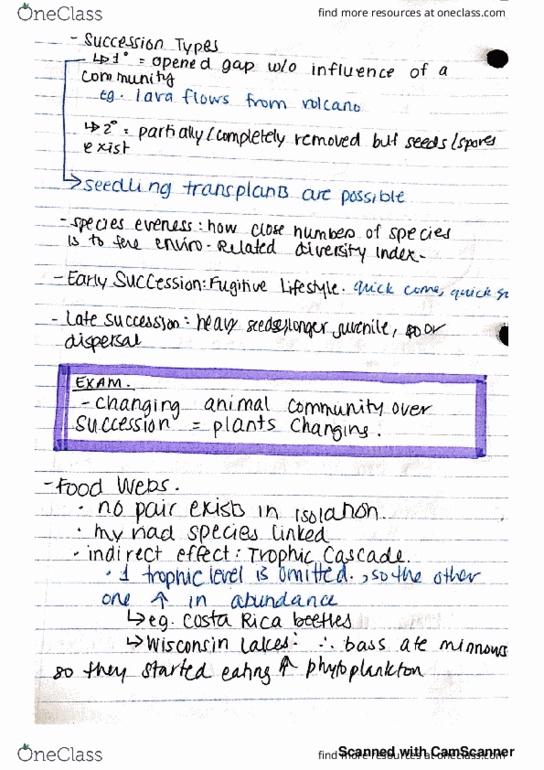 OneClass
find more resources at oneclass.com
- Succession Types
↳ 1° = opened gap w/o influence of a
community
eg. lava flows from volcano
↳ 2° = partially/completely removed but seeds/spores
exist
→ seedling transplants are possible
- species eveness: how close numbers of species
is to the enviro. Related diversity index.
- Early Succession: Fugitive Lifestyle. quick come, quick
- Late succession: heavy seeds, longer juvenile, poor
dispersal
EXAM.
- changing animal community over
succession = plants changing.
- Food Webs.
• no pair exists in isolation.
• myriad species linked
• indirect effect: Trophic Cascade.
• 1 trophic level is omitted, so the other
one ↑ in abundance
↳ eg. Costa Rica beetles
↳ Wisconsin Lakes: ∴ bass ate minnows
so they started eating ↑ phytoplankton
OneClass
find more resources at oneclass.com
Scanned with CamScanner